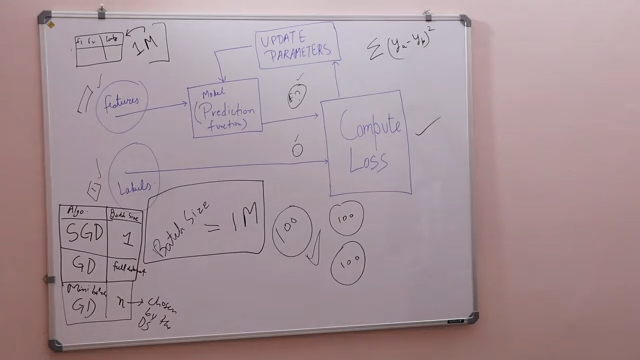 1M
UPDATE
PARAMETERS
Σ(ya-yb)²
Features
Model
(Prediction
function)
Compute
Loss
Labels
Algo
Batch Size
SGD
1
GD
GD
n
chosen
by the
DS
Batch Size
= 1M
100
100
100